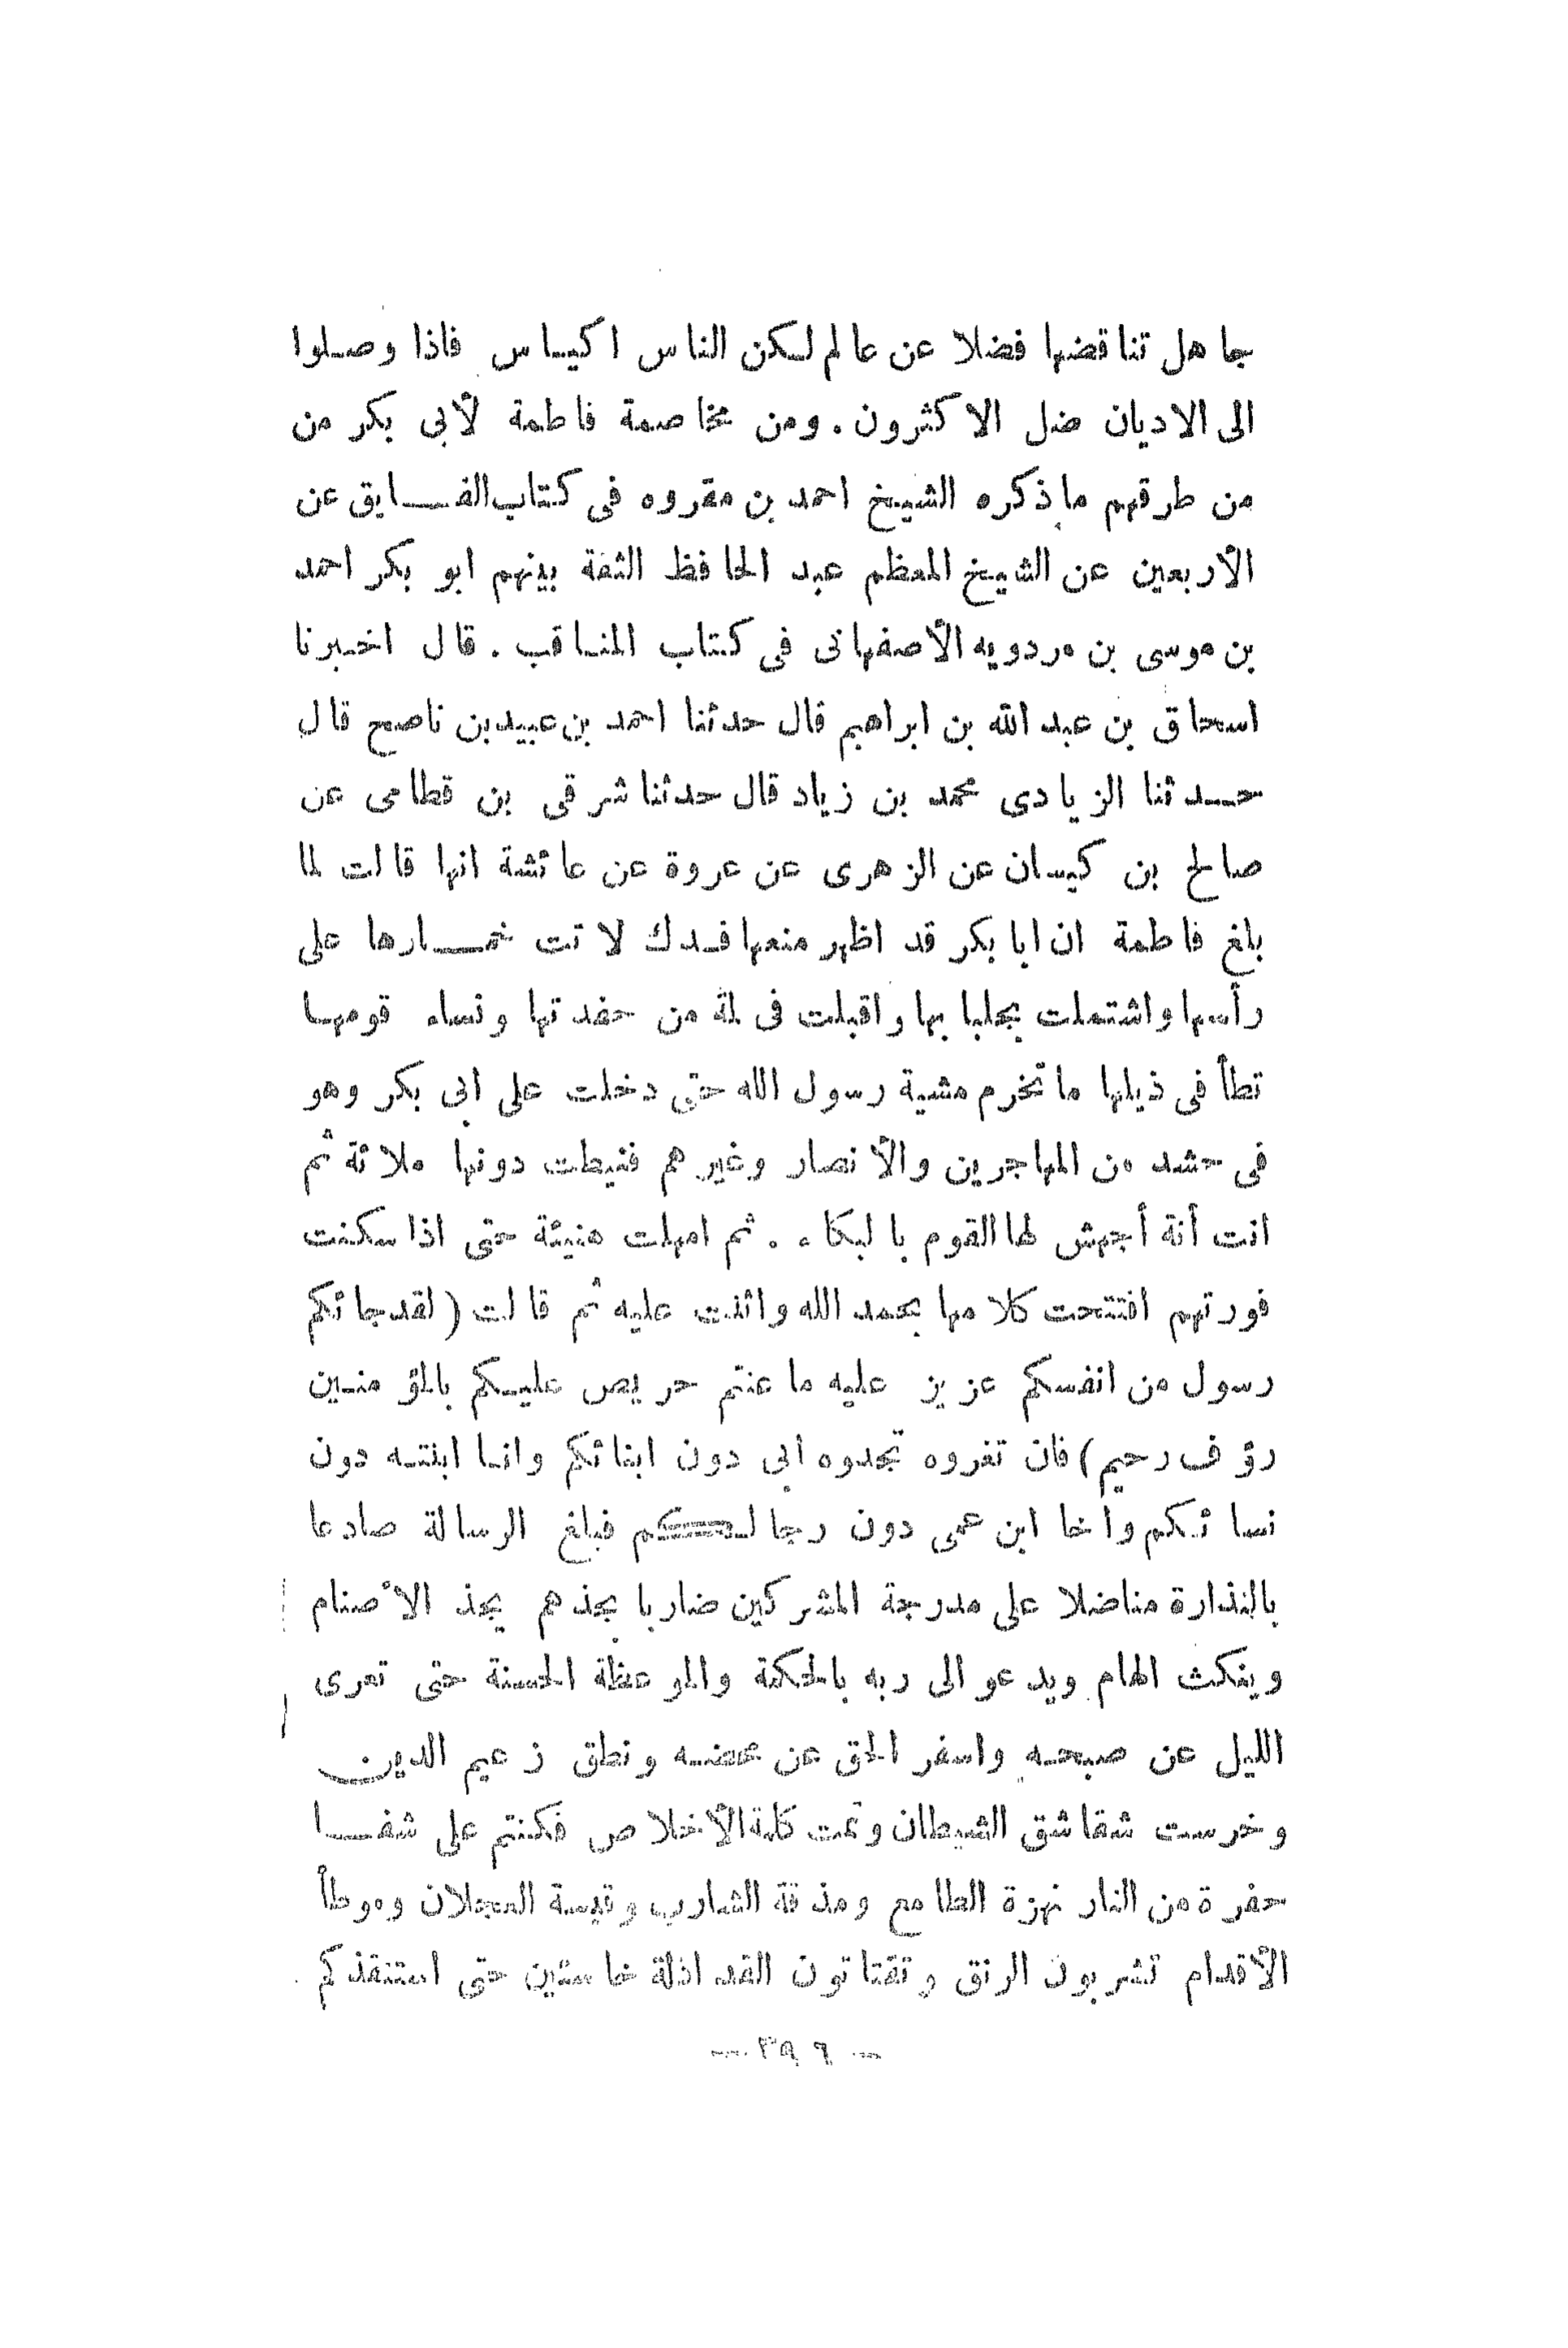 جاهل تناقضها فضلا عن عالم لكن الناس اكياس فاذا وصلوا
الى الاديان ضل الاكثرون . ومن مخاصمة فاطمة لأبى بكر من
من طرقهم ماذكره الشيخ احمد بن مقروه فى كتاب الفايق عن
الأربعين عن الشيخ المعظم عبد الحافظ الثقة بينهم ابو بكر احمد
بن موسى بن مردويه الأصفهانى فى كتاب المناقب . قال اخبرنا
اسحاق بن عبد الله بن ابراهيم قال حدثنا احمد بن عبيد بن ناصح قال
حدثنا الزيادى محمد بن زياد قال حدثنا شرقى بن قطامى عن
صالح بن كيسان عن الزهرى عن عروة عن عائشة انها قالت لما
بلغ فاطمة ان ابا بكر قد اظهر منعها فدك لاتت خمارها على
رأسها واشتملت بجلبابها واقبلت فى لمة من حفدتها ونساء قومها
تطأ فى ذيلها ماتخرم مشية رسول الله حتى دخلت على ابى بكر وهو
فى حشد من المهاجرين والأنصار وغيرهم فنيطت دونها ملائة ثم
انت أنة أجهش لها القوم بالبكاء . ثم امهلت هنيئة حتى اذا سكنت
فورتهم افتتحت كلامها بحمد الله واثنت عليه ثم قالت ( لقد جائكم
رسول من انفسكم عزيز عليه ما عنتم حريص عليكم بالمؤمنين
رؤف رحيم ) فان تعروه تجدوه ابى دون ابنائكم وانا ابنته دون
نسائكم واخا ابن عمى دون رجالكم فبلغ الرسالة صادعا
بالنذارة مناضلا على مدرجة المشركين ضاربا بجذهم يجذ الاصنام
وينكث الهام ويدعو الى ربه بالحكمة والموعظة الحسنة حتى تعرى
الليل عن صبحه واسفر الحق عن محضه ونطق زعيم الدين
وخرست شقاشق الشيطان وتمت كلمة الأخلاص فكنتم على شفا
حفرة من النار نهزة الطامع ومذقة الشارب وقبسة العجلان وموطأ
الأقدام تشربون الرنق وتقتاتون القد اذلة خاسئين حتى استنقذكم
— ٣٩٦ —